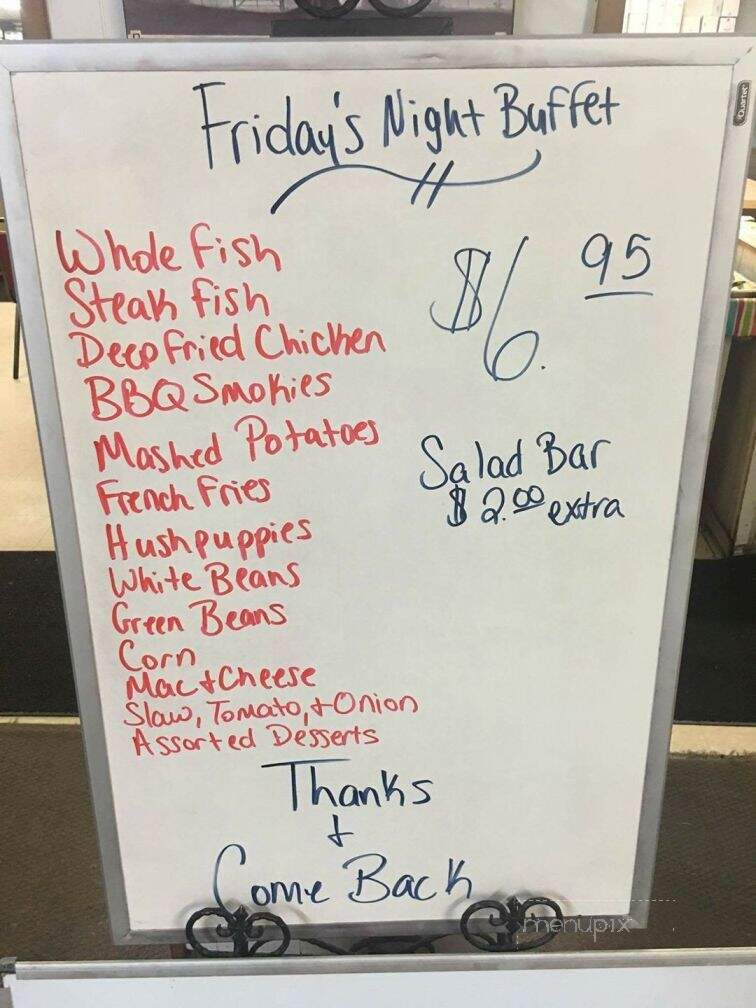 Friday's Night Buffet
Whole Fish
Steak Fish
Deep Fried Chicken
BBQ Smokies
Mashed Potatoes
French Fries
Hushpuppies
White Beans
Green Beans
Corn
Mac + Cheese
Slaw, Tomato, + Onion
Assorted Desserts
$6.95
Salad Bar
$2.00 extra
Thanks
+
Come Back
Quartet
menupix